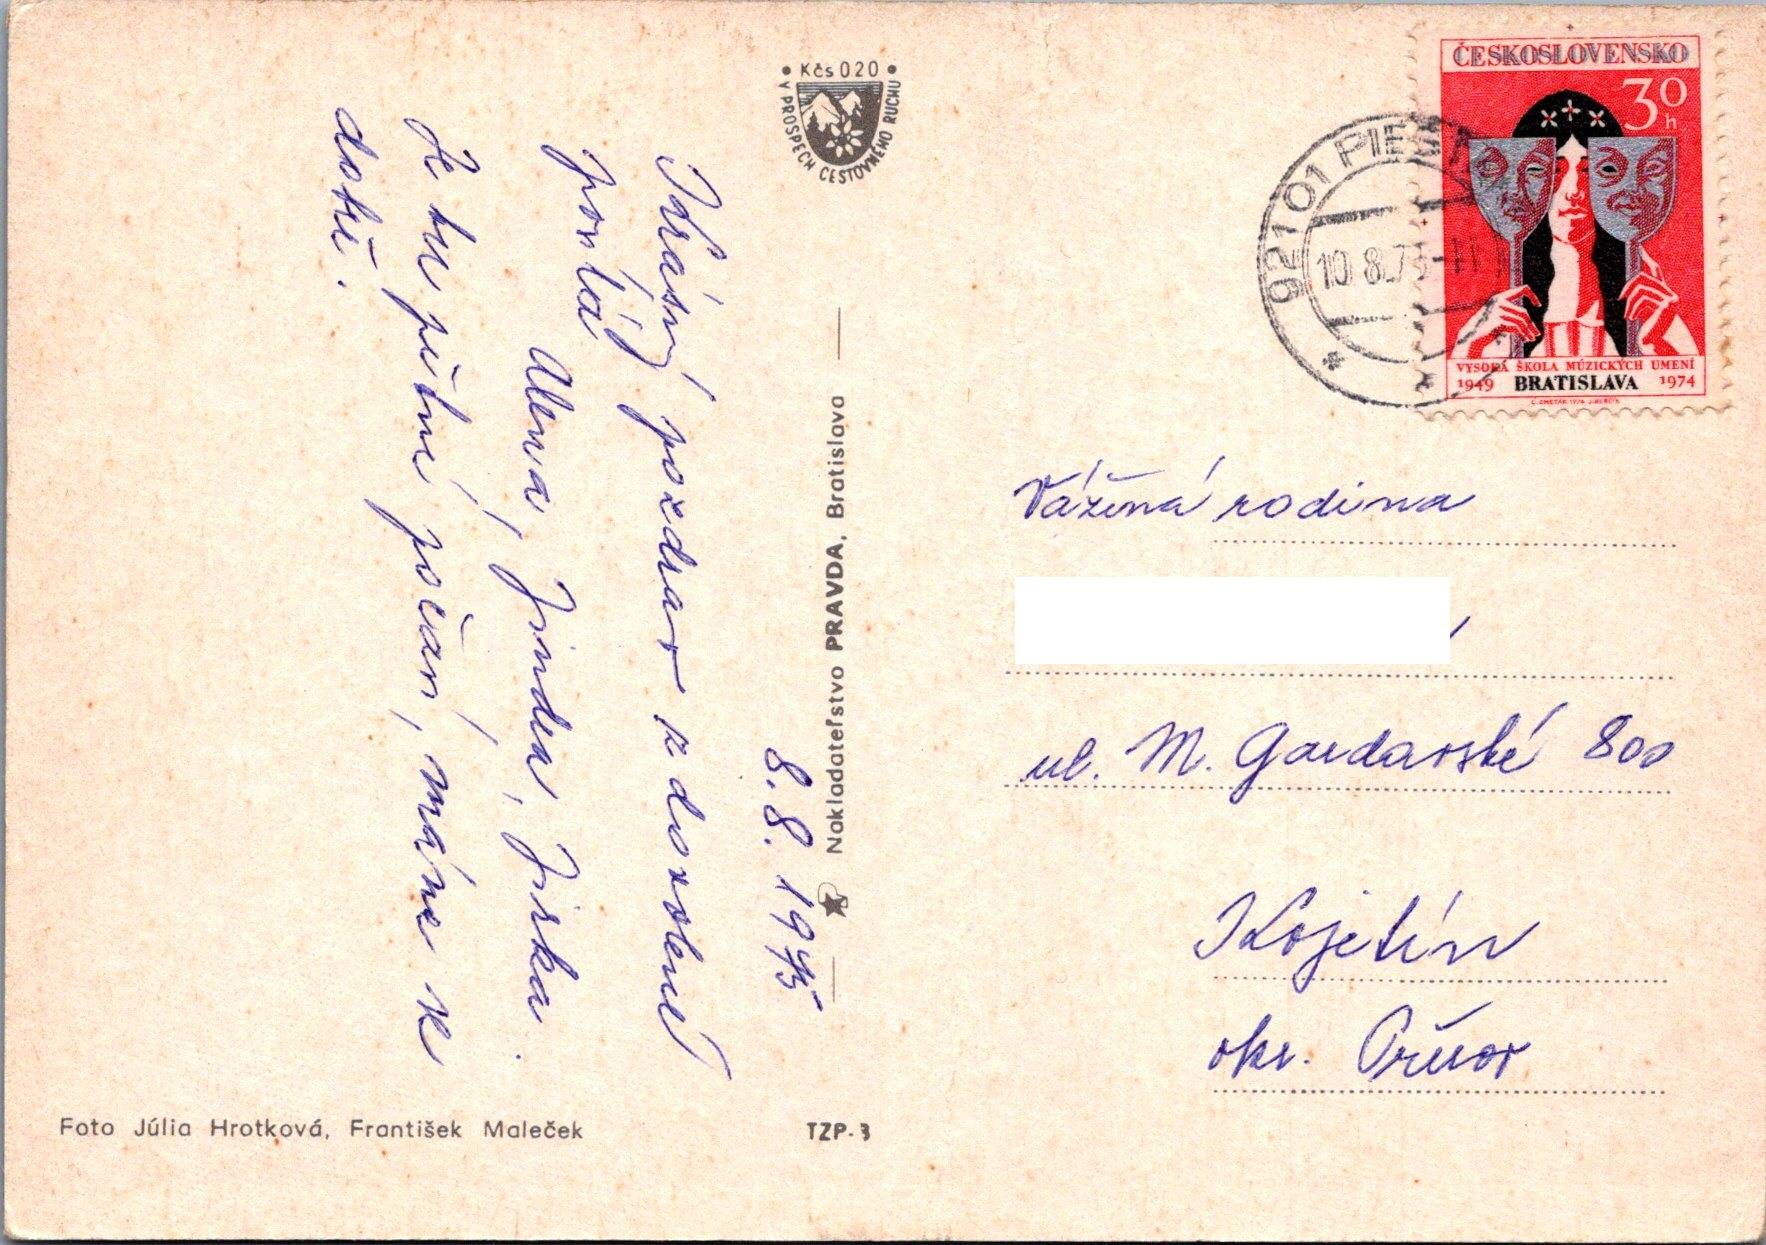 8.8.1975
Krásný pozdrav z dovolené
posílá
Alena, Jindra, Jirka.
Je tu pěkné počasí, máme se
dobře.
• Kčs 0.20 •
V PROSPECH CESTOVNÉHO RUCHU
Nakladateľstvo PRAVDA, Bratislava
Foto Júlia Hrotková, František Maleček
TZP-3
ČESKOSLOVENSKO
30 h
VYSOKÁ ŠKOLA MÚZICKÝCH UMENÍ
1949 BRATISLAVA 1974
921 01
10.8.75-11
Vážená rodina
ul. M. Gardavské 800
Kojetín
okr. Přerov